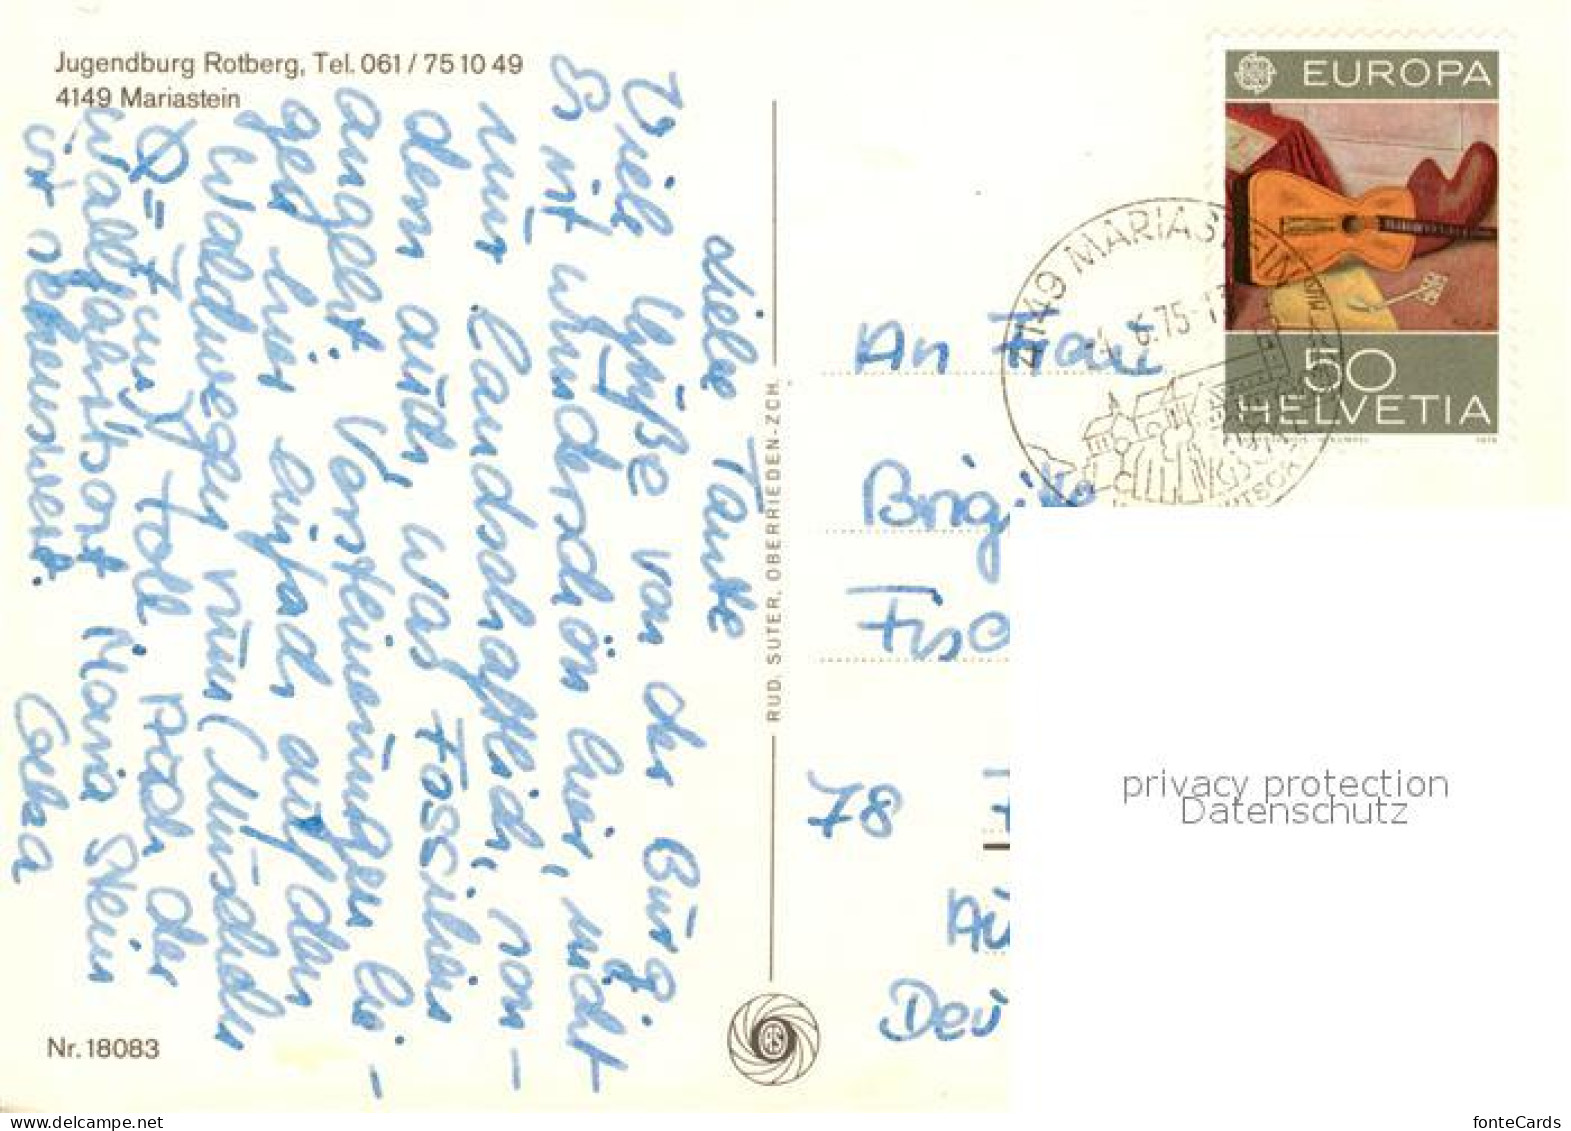 Jugendburg Rotberg, Tel. 061 / 75 10 49
4149 Mariastein
Liebe Tante
Viele Grüße von der Burg.
Es ist wunderschön hier, nicht
nur landschaftlich, son-
dern auch, was Fossilien
angeht. Versteinerungen lie-
gen hier einfach auf den
Waldwegen rum (Muscheln
Ø = 7 cm) Toll. Auch der
Wallfahrtsort Maria Stein
ist sehenswert.
Nr. 18083
RUD. SUTER, OBERRIEDEN-ZCH.
EUROPA
50
HELVETIA
4149 MARIASTEIN
6.75
An Frau
Brigitte
78
privacy protection
Datenschutz
www.delcampe.net
fonteCards